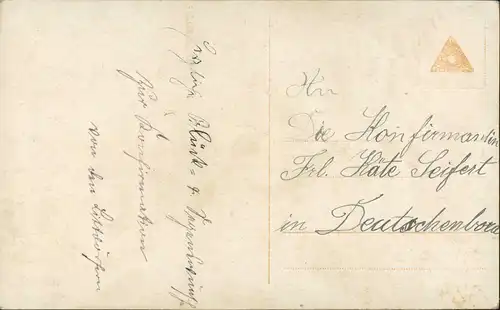 Herzliche Glück- & Segenswünsche
zur Konfirmation
von den
An
Die Konfirmandin
Frl. Käte Seifert
in Deutschenbora